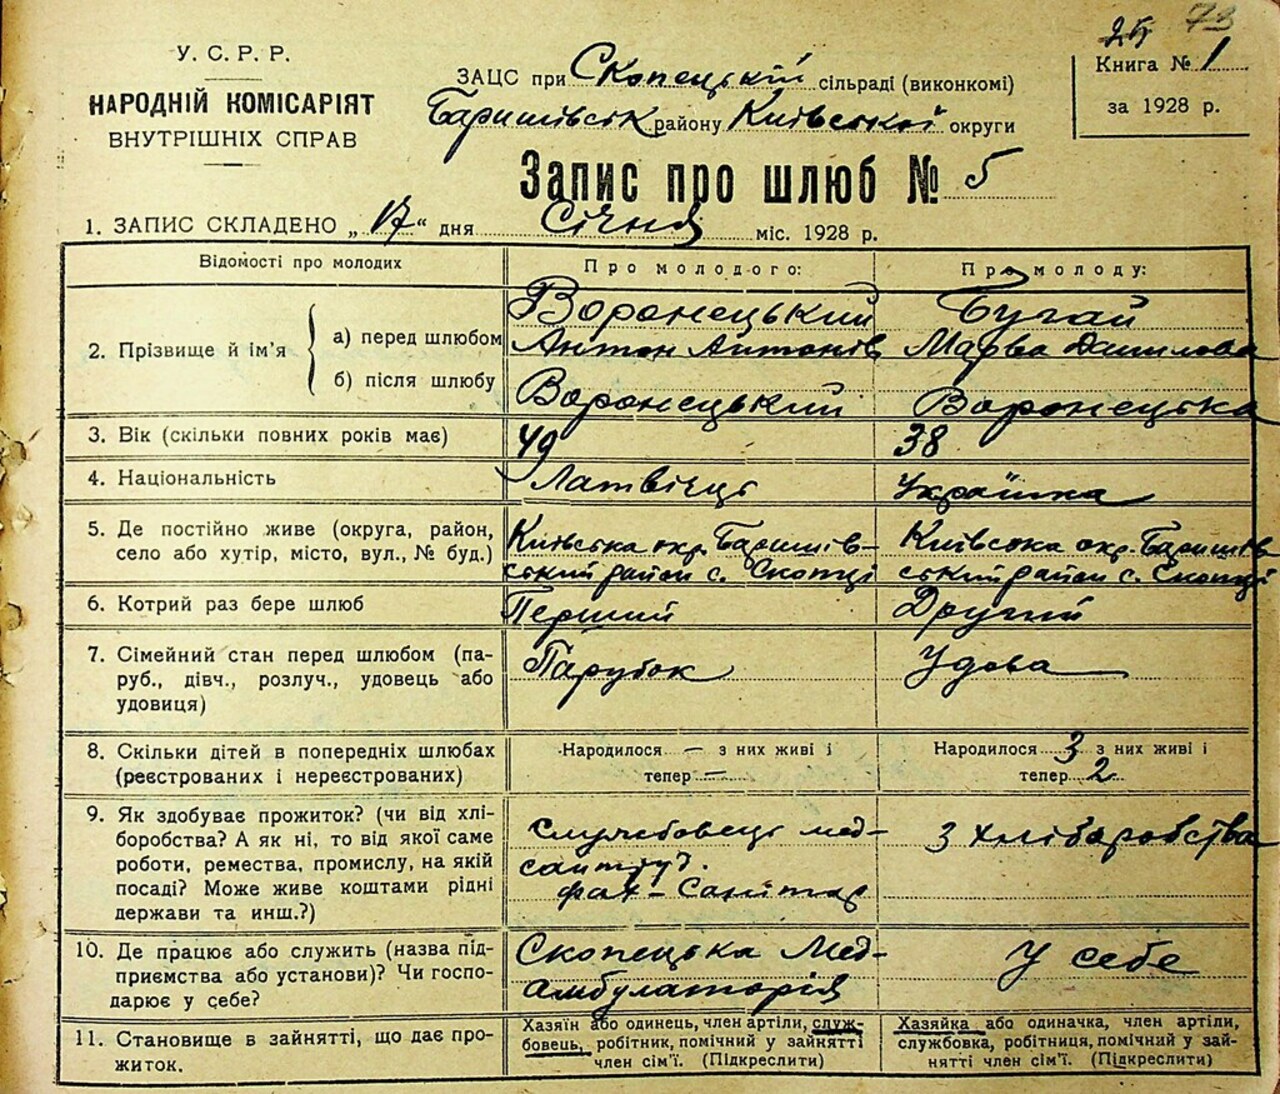 25 73
У. С. Р. Р.
НАРОДНІЙ КОМІСАРІЯТ
ВНУТРІШНІХ СПРАВ
ЗАЦС при Скопецькій сільраді (виконкомі)
Баришівськ району Київської округи
Книга № 1
за 1928 р.
Запис про шлюб № 5
1. ЗАПИС СКЛАДЕНО „17“ дня Січня міс. 1928 р.
Відомості про молодих
Про молодого:
Про молоду:
2. Прізвище й ім’я
а) перед шлюбом
Воронецький
Антон Антонів
Бугай
Марва Данилова
б) після шлюбу
Воронецький
Воронецька
3. Вік (скільки повних років має)
49
38
4. Національність
Латвієць
Українка
5. Де постійно живе (округа, район,
село або хутір, місто, вул., № буд.)
Київська окр. Баришів-
ський район с. Скопці
Київська окр. Баришів-
ський район с. Скопці
6. Котрий раз бере шлюб
Перший
Другий
7. Сімейний стан перед шлюбом (па-
руб., дівч., розлуч., удовець або
удовиця)
Парубок
Удова
8. Скільки дітей в попередніх шлюбах
(реєстрованих і нереєстрованих)
Народилося — з них живі і
тепер —
Народилося 3 з них живі і
тепер 2
9. Як здобуває прожиток? (чи від хлі-
боробства? А як ні, то від якої саме
роботи, ремества, промислу, на якій
посаді? Може живе коштами рідні
держави та инш.?)
Служебовець мед-
сантруд.
фах - Санітар
З хліборобства
10. Де працює або служить (назва під-
приємства або установи)? Чи госпо-
дарює у себе?
Скопецька Мед-
амбулаторія
У себе
11. Становище в зайнятті, що дає про-
житок.
Хазяїн або одинець, член артілі, служ-
бовець, робітник, помічний у зайнятті
член сім’ї. (Підкреслити)
Хазяйка або одиначка, член артілі,
службовка, робітниця, помічний у зай-
нятті член сім’ї. (Підкреслити)